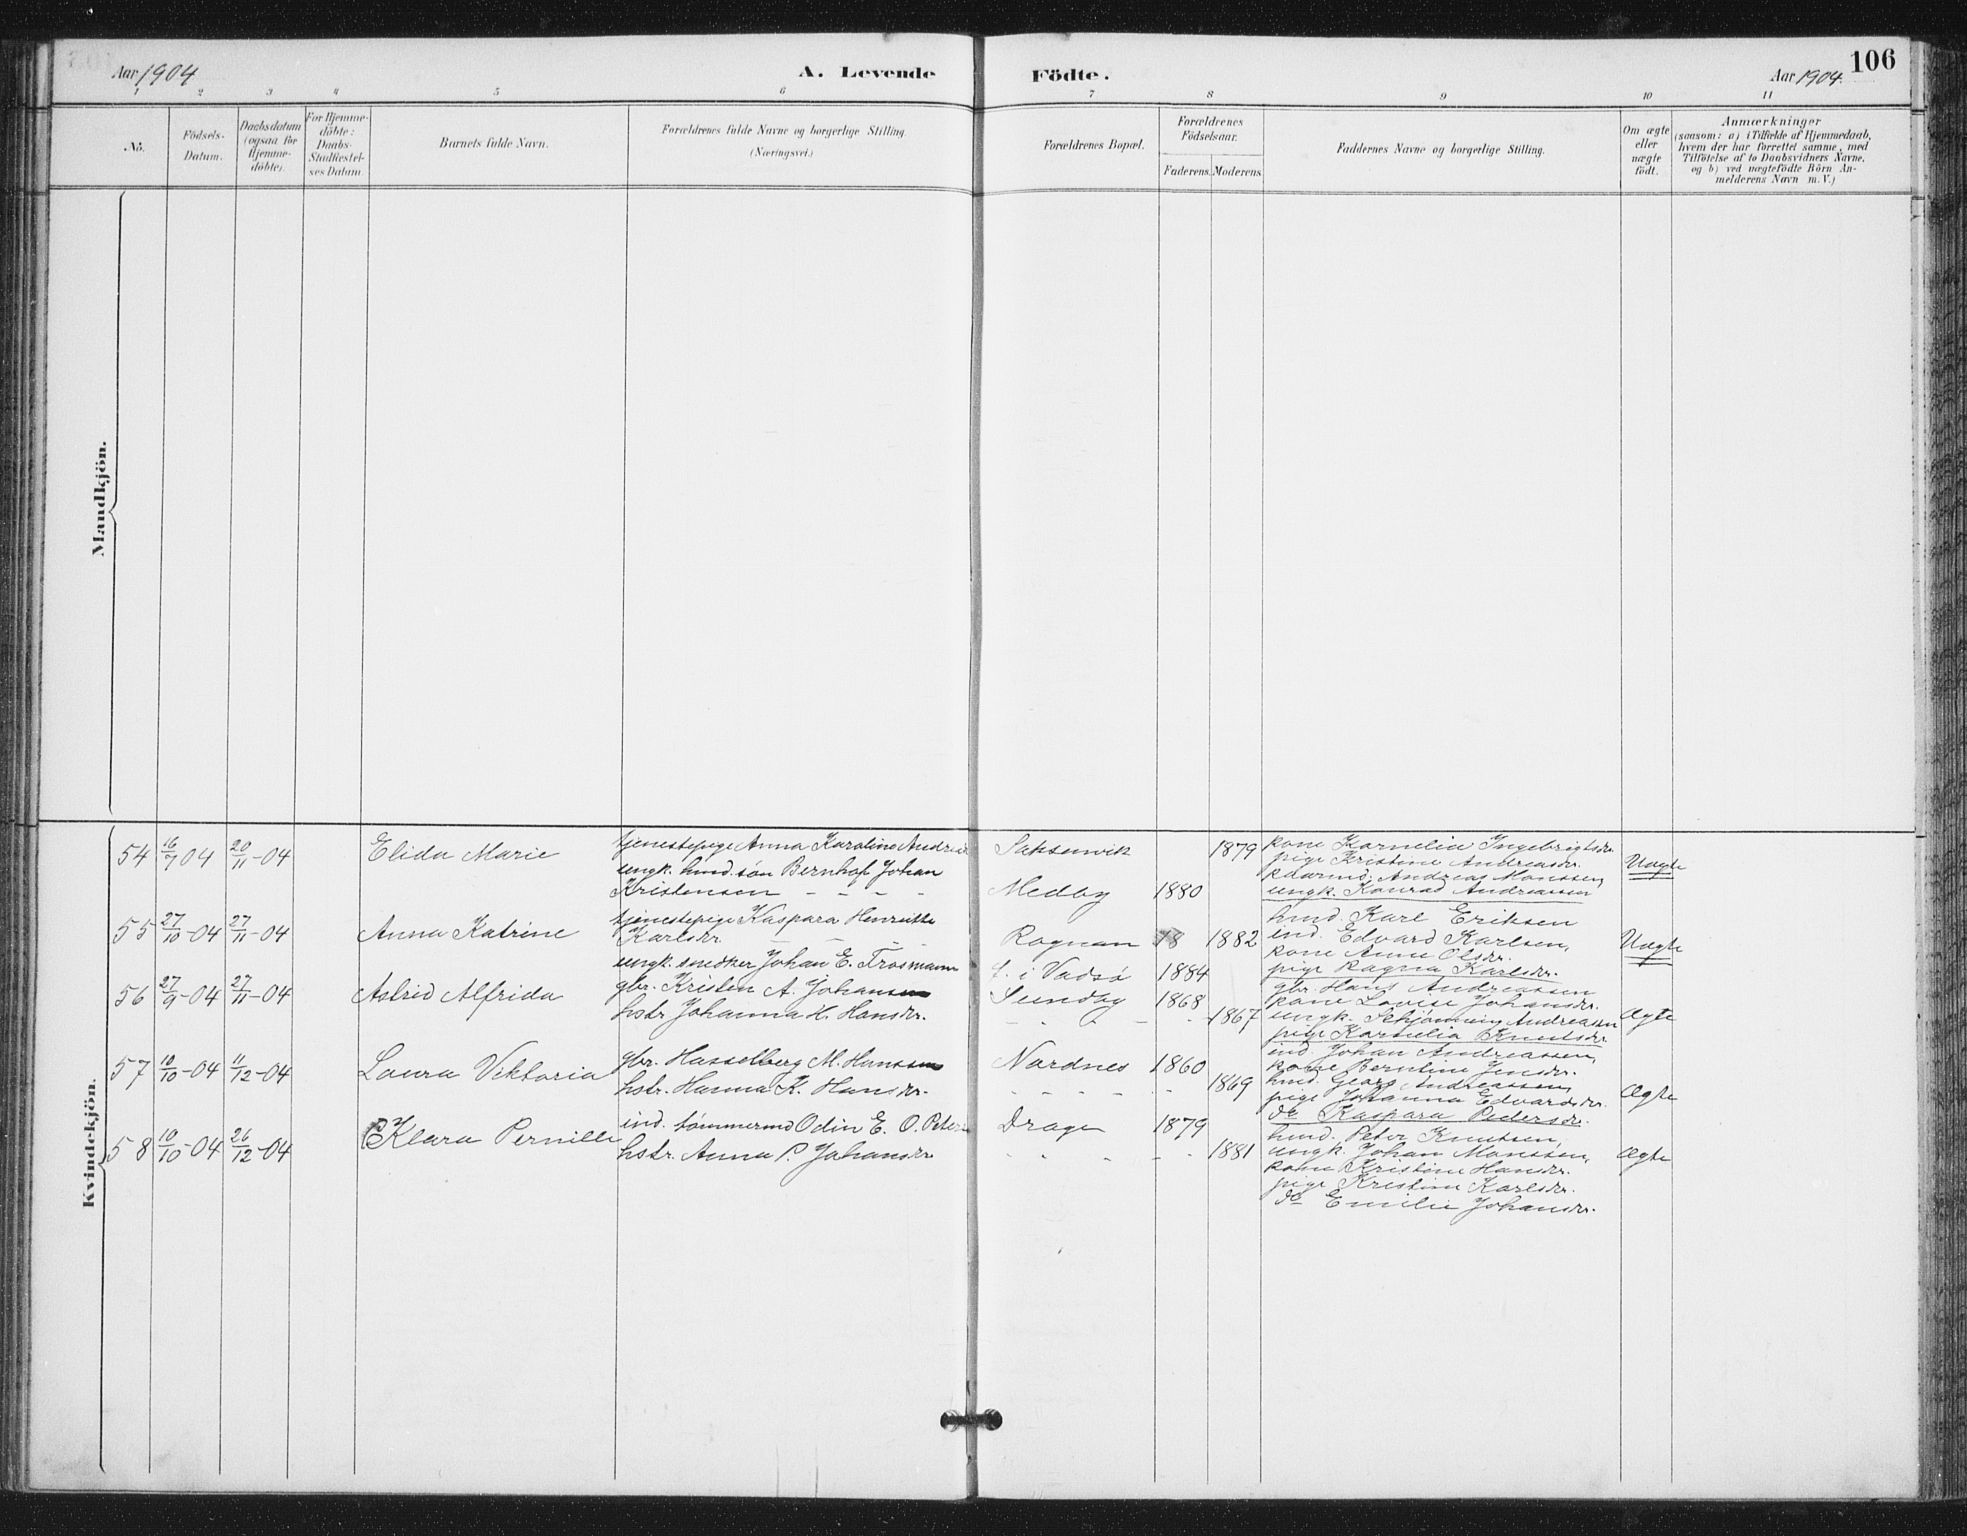 Aar 1904
A. Levende
Födte.
Aar 1904.
106
1 2 3 4 5 6 7 8 9 10 11
No.
Födsels-
Datum.
Daabsdatum
(ogsaa for
Hjemme-
döbte).
For Hjemme-
döbte:
Daabs-
Stadfæstel-
ses Datum.
Barnets fulde Navn.
Forældrenes fulde Navne og borgerlige Stilling.
(Næringsvei.)
Forældrenes Bopæl.
Forældrenes
Födselsaar.
Faderens. Moderens.
Faddernes Navne og borgerlige Stilling.
Om ægte
eller
uægte
födt.
Anmærkninger
(saasom: a) i Tilfælde af Hjemmedaab,
hvem der har forrettet samme, med
Tilföielse af to Daabsvidners Navne,
og b) ved uægtefödte Börn An-
melderens Navn m.V.)
Mandkjön.
Kvindekjön.
54 16/7 04 20/11-04 Elida Marie
tjenestepige Anna Karoline Andreas
ungk. hmd. søn Bernhof Johan
Kristensen - - - -
Saksenvik 1879
Medby 1880
kone Kornelia Ingebrigtsdr.
pige Kristine Andreasdr.
Andreas Monssen,
ungk. Konrad Andreassen
Uægte
55 27/10-04 27/11-04 Anna Katrine
tjenestepige Kaspara Henrikke
Karlsdr. - - -
ungk. snedker Johan E. Trosmann
Rognan 18 1882
f. i Vadsö 1884
hmd. Karl Eriksen
ind. Edvard Karlsen,
kone Anne Olsdr.
pige Ragna Karlsdr.
Uægte
56 27/9-04 27/11-04 Astrid Alfrida
gbr. Kristen A. Johansen
hstr. Johanna H. Hansdr.
Sundby 1868
- - - - 1867
gbr. Hans Andreassen
kone Lovise Johansdr.
ungk. Schjønning Andreasen
pige Kornelia Knutsdr.
Ægte
57 10/10-04 11/12-04 Laura Viktoria
gbr. Hasselberg M. Hanssen
hstr. Hanna K. Hansdr.
Nordnes 1860
- - - - - 1869
ind. Johan Andreassen,
kone Berntine Jensdr.
hmd. Georg Andreassen,
pige Johanna Edvardsdr.
do Kaspara Pedersdr.
Ægte
58 10/10-04 26/12-04 Klara Pernille
ind. tømmermd Odin E. O. Peters
hstr. Anna P. Johansdr
Drage 1879
- - - - - 1881
hmd. Peter Knutsen,
ungk. Johan Monssen,
kone Kristine Hansdr.
pige Kristine Karlsdr.
do Emilie Johansdr.
Ægte